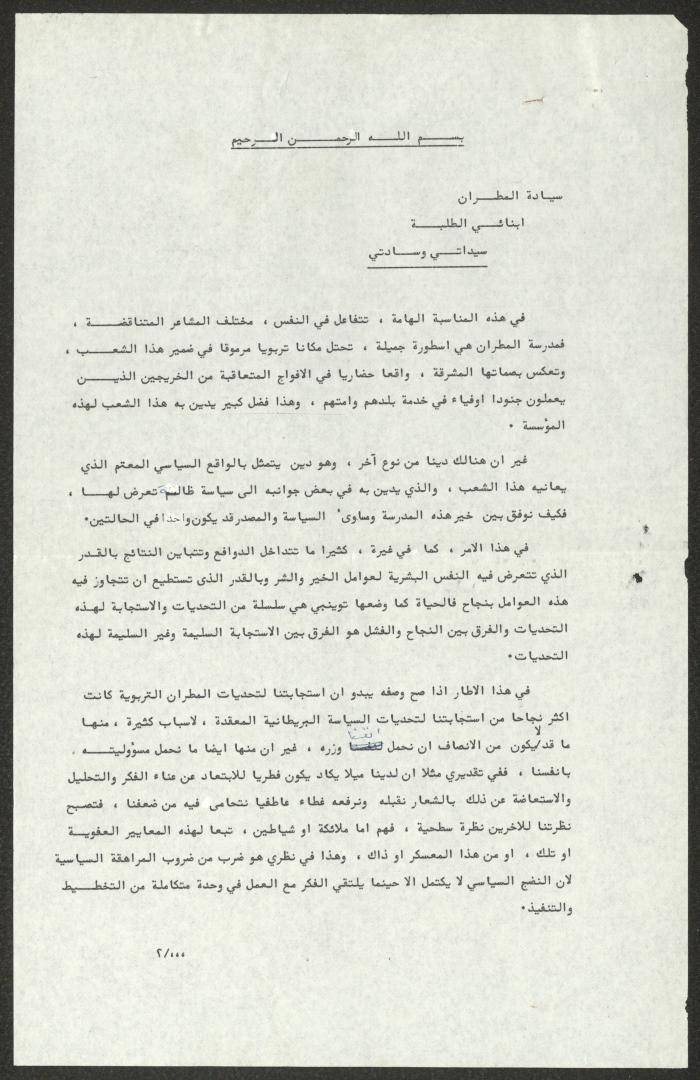 بسم الله الرحمن الرحيم
سيادة المطران
ابنائي الطلبة
سيداتي وسادتي
في هذه المناسبة الهامة ، تتفاعل في النفس ، مختلف المشاعر المتناقضة ،
فمدرسة المطران هي اسطورة جميلة ، تحتل مكانا تربويا مرموقا في ضمير هذا الشعب ،
وتعكس بصماتها المشرقة ، واقعا حضاريا في الافواج المتعاقبة من الخريجين الذين
يعملون جنودا اوفياء في خدمة بلدهم وامتهم ، وهذا فضل كبير يدين به هذا الشعب لهذه
المؤسسة .
غير ان هنالك دينا من نوع آخر ، وهو دين يتمثل بالواقع السياسي المعتم الذي
يعانيه هذا الشعب ، والذي يدين به في بعض جوانبه الى سياسة ظالمة تعرض لها ،
فكيف نوفق بين خير هذه المدرسة ومساوىء السياسة والمصدر قد يكون واحدا في الحالتين.
في هذا الامر ، كما في غيرة ، كثيرا ما تتداخل الدوافع وتتباين النتائج بالقدر
الذي تتعرض فيه النفس البشرية لعوامل الخير والشر وبالقدر الذى تستطيع ان تتجاوز فيه
هذه العوامل بنجاح فالحياة كما وضعها توينبي هي سلسلة من التحديات والاستجابة لهذه
التحديات والفرق بين النجاح والفشل هو الفرق بين الاستجابة السليمة وغير السليمة لهذه
التحديات.
في هذا الاطار اذا صح وصفه يبدو ان استجابتنا لتحديات المطران التربوية كانت
اكثر نجاحا من استجابتنا لتحديات السياسة البريطانية المعقدة ، لاسباب كثيرة ، منها
ما قد لا يكون من الانصاف ان نحمل انفسنا وزره ، غير ان منها ايضا ما نحمل مسؤوليته .
بانفسنا ، ففي تقديري مثلا ان لدينا ميلا يكاد يكون فطريا للابتعاد عن عناء الفكر والتحليل
والاستعاضة عن ذلك بالشعار نقبله ونرفعه غطاء عاطفيا نتحامى فيه من ضعفنا ، فتصبح
نظرتنا للاخرين نظرة سطحية ، فهم اما ملائكة او شياطين ، تبعا لهذه المعايير العفوية
او تلك ، او من هذا المعسكر او ذاك ، وهذا في نظري هو ضرب من ضروب المراهقة السياسية
لان النضج السياسي لا يكتمل الا حينما يلتقي الفكر مع العمل في وحدة متكاملة من التخطيط
والتنفيذ.
٢/،،،